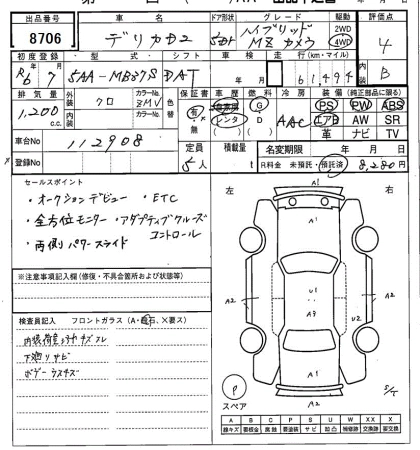 出品番号 車名 ドア形状 グレード 駆動 評価点
8706 デリカD2 5Dr ハイブリッド MZ カメラ 2WD 4WD 4
初度登録 型式 シフト 車検 走行(km・マイル) 内装
R6 7 5AA-MB37S DAT 年 月 61,494 B
排気量 外装 カラーNo. 内装 カラーNo. 色替 保証書 車歴 燃料 冷房 装備 (純正部品に限る)
1,200 c.c. クロ ZMV 有・無 自家用 レンタ G D AAC PS PW ABS
エアB AW SR
革 ナビ TV
車台No 112908
定員 積載量 名変期限 年 月 日
登録No 5人 t R料金 未預託・預託済 8,280円
セールスポイント
・オークションデビュー ・ETC
・全方位モニター ・アダプティブクルーズコントロール
・両側パワースライド
※注意事項記入欄(修復・不具合箇所および状態等)
検査員記入 フロントガラス(A・飛石、×要ス)
内装荷室
下廻りサビ
ボデーウスキズ
左 右
A1
A1
A2 U2 A2
A3 U2
A1
A2
P
スペア
A B C P S U W XX X
線キズ 要板金 腐蝕 要塗装 サビ 凹凸 補修跡 交換跡 要交換